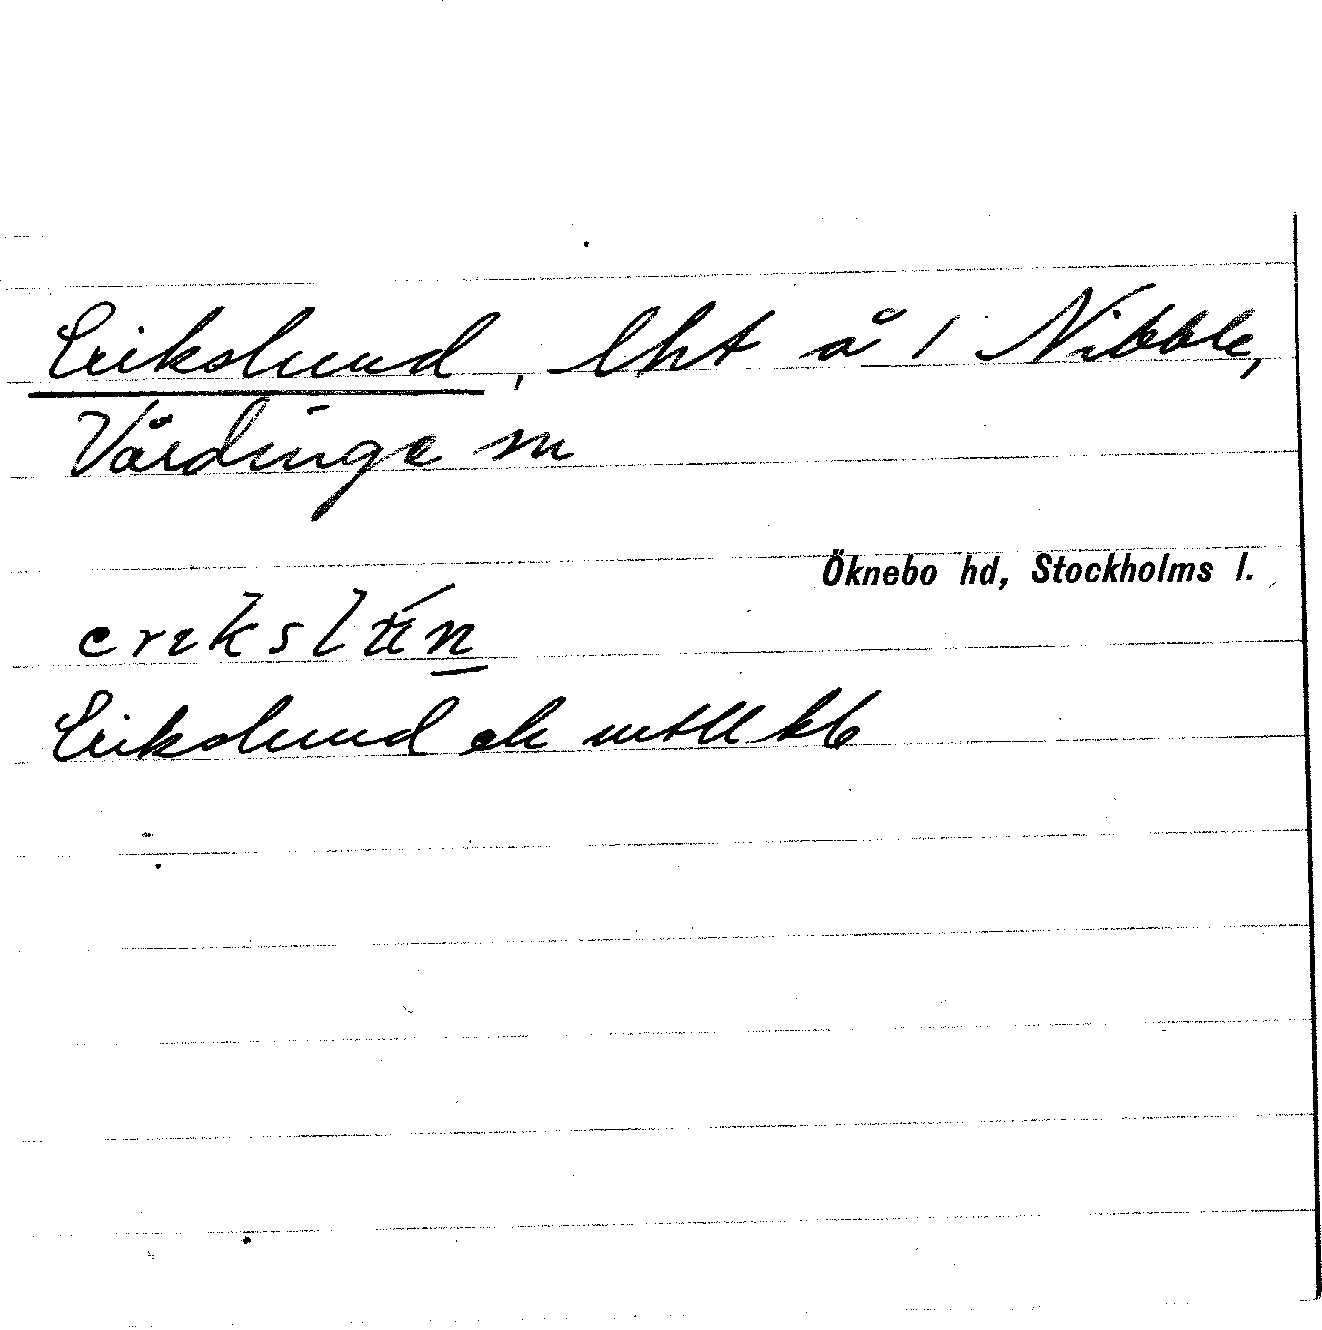 Erikslund, lht å 1 Nibble,
Vårdinge sn
Öknebo hd, Stockholms l.
Erikslund ek mtll kb